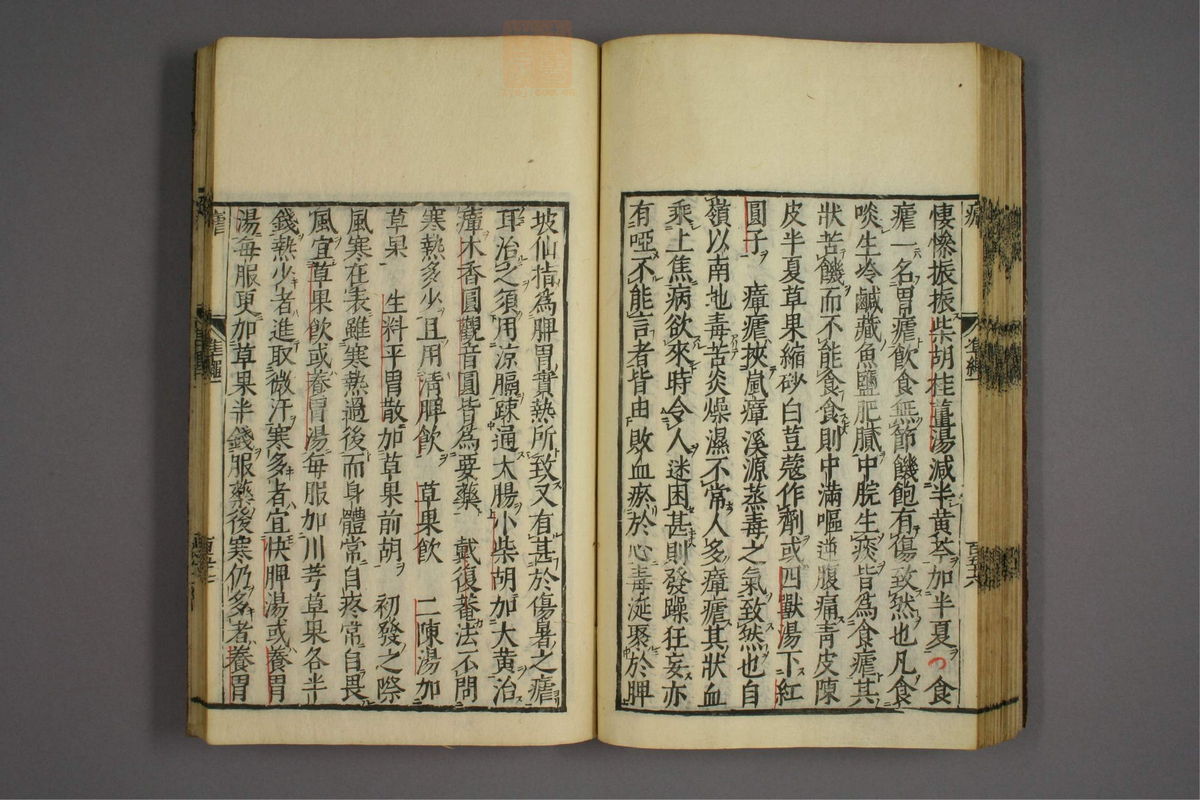 悽慘振振柴胡桂薑湯減半黃芩加半夏 食
瘧一名胃瘧飲食無節饑飽有傷致然也凡食
啖生冷鹹藏魚鹽肥膩中脘生痰皆為食瘧其
狀苦饑而不能食食則中滿嘔逆腹痛青皮陳
皮半夏草果縮砂白荳蔻作劑或四獸湯下紅
圓子 瘴瘧挾嵐瘴溪源蒸毒之氣致然也自
嶺以南地毒苦炎燥濕不常人多瘴瘧其狀血
乘上焦病欲來時令人迷困甚則發躁狂妄亦
有啞不能言者皆由敗血瘀於心毒涎聚於脾
坡仙指為脾胃實熱所致又有甚於傷暑之瘧
耳治之須用涼膈疎通大腸小柴胡加大黃治
瘴木香圓觀音圓皆為要藥 戴復菴法不問
寒熱多少且用清脾飲 草果飲 二陳湯加
草果 生料平胃散加草果前胡 初發之際
風寒在表雖寒熱過後而身體常自疼常自畏
風宜草果飲或養胃湯每服加川芎草果各半
錢熱少者進取微汗寒多者宜快脾湯或養胃
湯每服更加草果半錢服藥後寒仍多者養胃
瘧